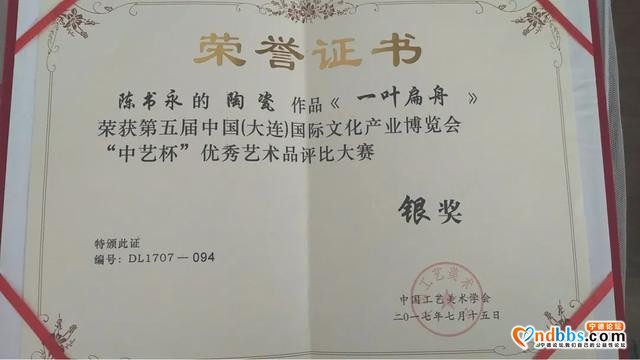 荣誉证书
陈书永的 陶瓷 作品《一叶扁舟》
荣获第五届中国(大连)国际文化产业博览会
“中艺杯”优秀艺术品评比大赛
银奖
特颁此证
编号:DL1707—094
工艺美术
中国工艺美术学会
二〇一七年七月十五日
宁德论坛
ndbbs.com
宁德论坛,我们自己的公益性论坛